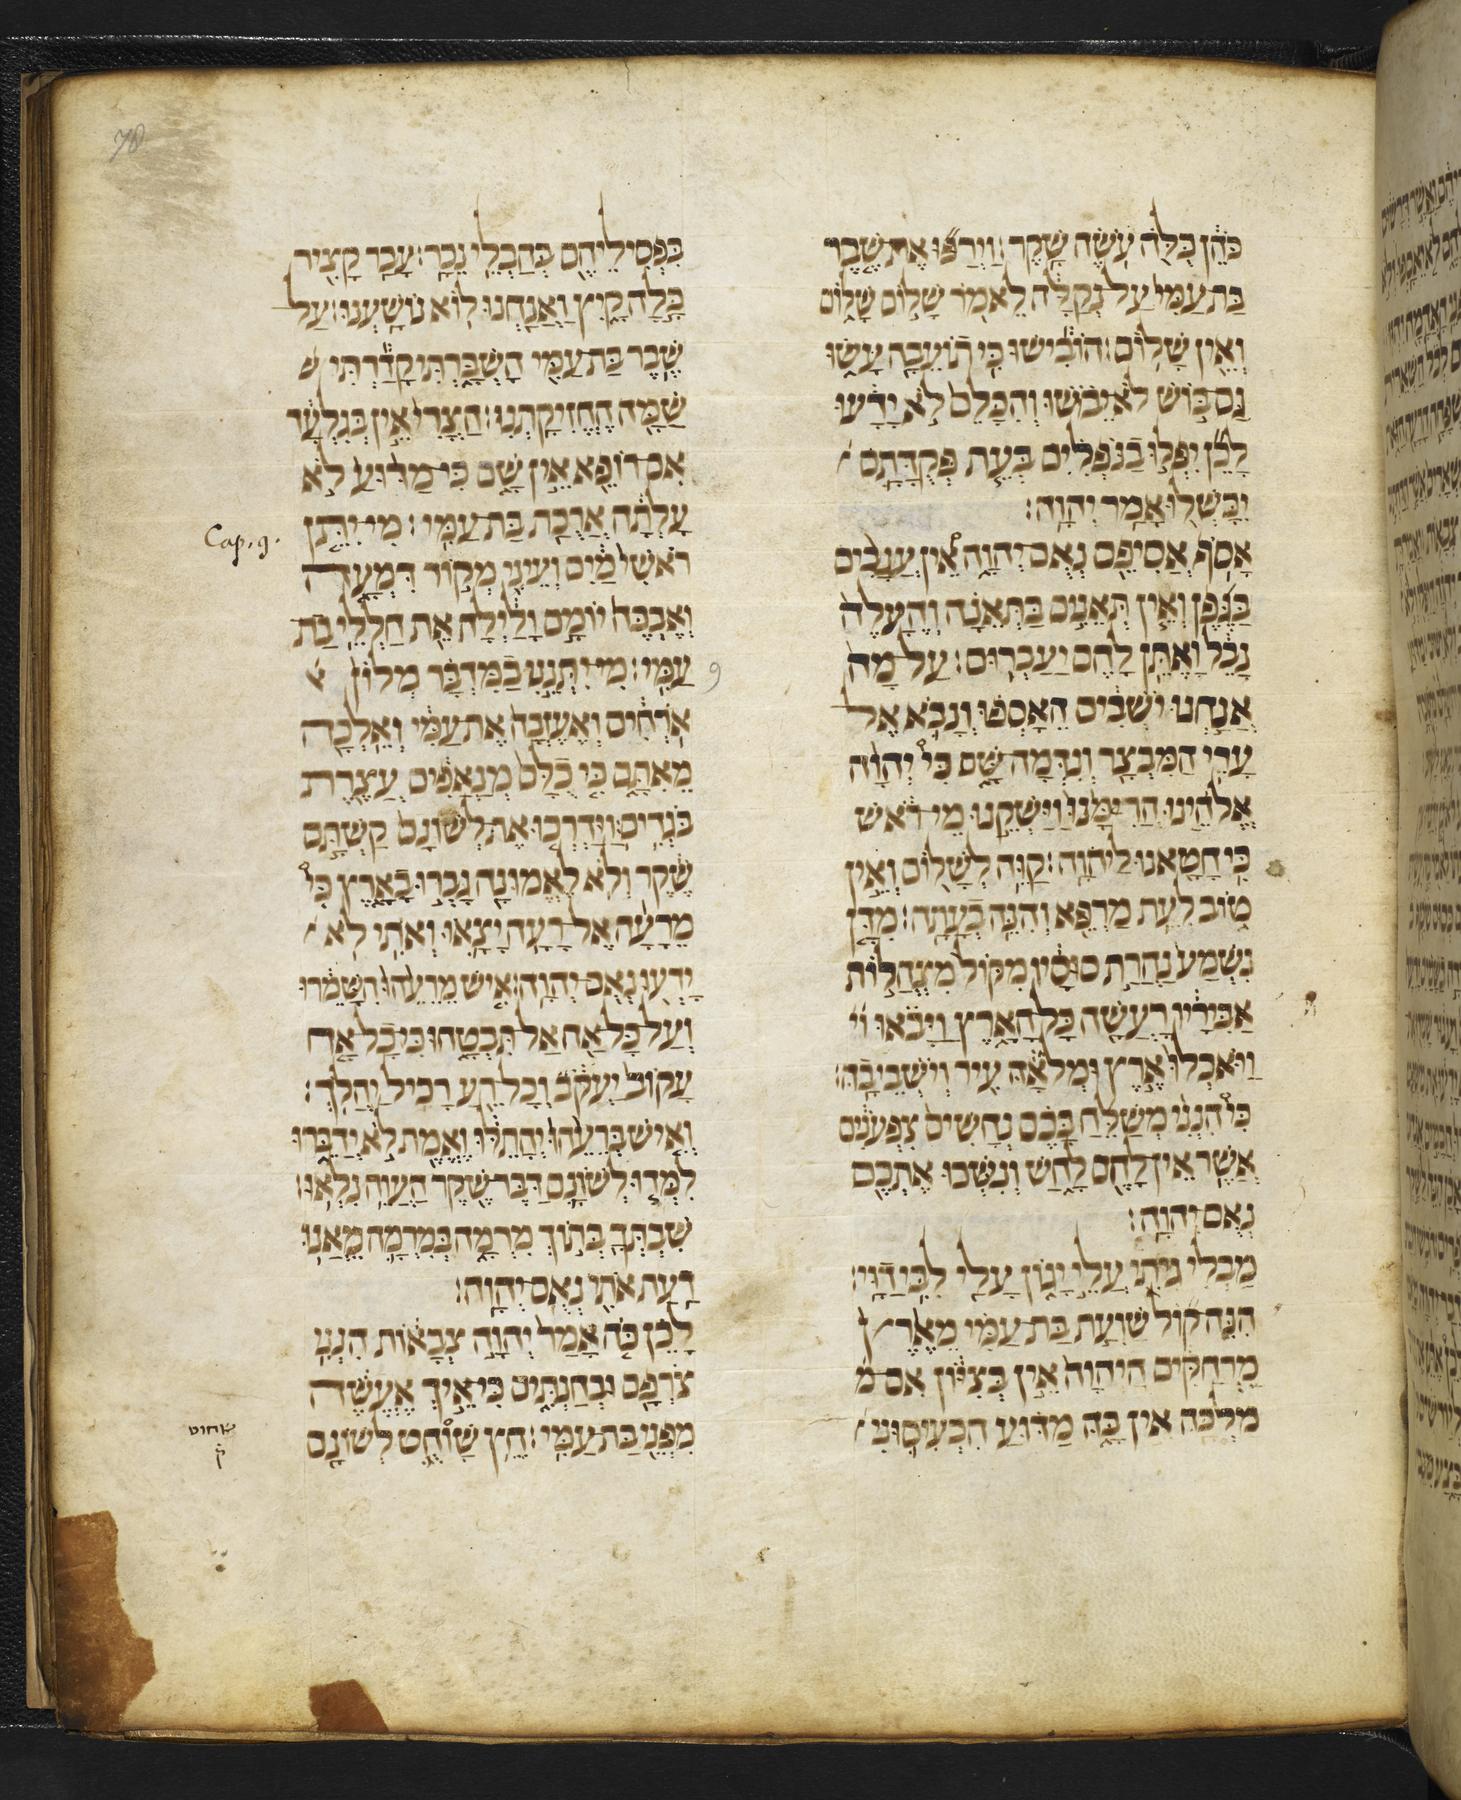 כֹּהֵן כֻּלֹּה עֹשֶׂה שָּׁקֶר׃ וַיְרַפּוּ אֶת שֶׁבֶר
בַּת עַמִּי עַל נְקַלָּה לֵאמֹר שָׁלוֹם שָׁלוֹם
וְאֵין שָׁלוֹם׃ הוֹבִישׁוּ כִּי תוֹעֵבָה עָשׂוּ
גַּם בּוֹשׁ לֹא יֵבֹשׁוּ וְהִכָּלֵם לֹא יָדָעוּ
לָכֵן יִפְּלוּ בַנֹּפְלִים בְּעֵת פְּקֻדָּתָם
יִכָּשְׁלוּ אָמַר יְהוָה׃
אָסֹף אֲסִיפֵם נְאֻם יְהוָה אֵין עֲנָבִים
בַּגֶּפֶן וְאֵין תְּאֵנִים בַּתְּאֵנָה וְהֶעָלֶה
נָבֵל וָאֶתֵּן לָהֶם יַעַבְרוּם׃ עַל מָה
אֲנַחְנוּ יֹשְׁבִים הֵאָסְפוּ וְנָבֹא אֶל
עָרֵי הַמִּבְצָר וְנִדְּמָה שָּׁם כִּי יְהוָה
אֱלֹהֵינוּ הֲדִמָּנוּ וַיַּשְׁקֵנוּ מֵי רֹאשׁ
כִּי חָטָאנוּ לַיהוָה׃ קַוֵּה לְשָׁלוֹם וְאֵין
טוֹב לְעֵת מַרְפֵּא וְהִנֵּה בְעָתָה׃ מִדָּן
נִשְׁמַע נַחֲרַת סוּסָיו מִקּוֹל מִצְהֲלוֹת
אַבִּירָיו רָעֲשָׁה כָּל הָאָרֶץ וַיָּבֹאוּ
וַיֹּאכְלוּ אֶרֶץ וּמְלֹאָהּ עִיר וְיֹשְׁבֵי בָהּ׃
כִּי הִנְנִי מְשַׁלֵּחַ בָּכֶם נְחָשִׁים צִפְעֹנִים
אֲשֶׁר אֵין לָהֶם לָחַשׁ וְנִשְּׁכוּ אֶתְכֶם
נְאֻם יְהוָה׃
מַבְלִיגִיתִי עֲלֵי יָגוֹן עָלַי לִבִּי דַוָּי׃
הִנֵּה קוֹל שַׁוְעַת בַּת עַמִּי מֵאֶרֶץ
מַרְחַקִּים הַיהוָה אֵין בְּצִיּוֹן אִם מ
מַלְכָּהּ אֵין בָּהּ מַדּוּעַ הִכְעִסוּנִי
בִּפְסִילֵיהֶם בְּהַבְלֵי נֵכָר׃ עָבַר קָצִיר
כָּלָה קָיִץ וַאֲנַחְנוּ לוֹא נוֹשָׁעְנוּ׃ עַל
שֶׁבֶר בַּת עַמִּי הָשְׁבָּרְתִּי קָדַרְתִּי ש
שַׁמָּה הֶחֱזִיקָתְנִי׃ הַצֳּרִי אֵין בְּגִלְעָד
אִם רוֹפֵא אֵין שָׁם כִּי מַדּוּעַ לֹא
עָלְתָה אֲרֻכַת בַּת עַמִּי׃ מִי יִתֵּן
רֹאשִׁי מַיִם וְעֵינִי מְקוֹר דִּמְעָה
וְאֶבְכֶּה יוֹמָם וָלַיְלָה אֵת חַלְלֵי בַת
עַמִּי׃ מִי יִתְּנֵנִי בַמִּדְבָּר מְלוֹן
אֹרְחִים וְאֶעֶזְבָה אֶת עַמִּי וְאֵלְכָה
מֵאִתָּם כִּי כֻלָּם מְנָאֲפִים עֲצֶרֶת
בֹּגְדִים׃ וַיַּדְרְכוּ אֶת לְשׁוֹנָם קַשְׁתָּם
שֶׁקֶר וְלֹא לֶאֱמוּנָה גָּבְרוּ בָאָרֶץ כִּי
מֵרָעָה אֶל רָעָה יָצָאוּ וְאֹתִי לֹא
יָדָעוּ נְאֻם יְהוָה׃ אִישׁ מֵרֵעֵהוּ הִשָּׁמֵרוּ
וְעַל כָּל אָח אַל תִּבְטָחוּ כִּי כָל אָח
עָקוֹב יַעְקֹב וְכָל רֵעַ רָכִיל יַהֲלֹךְ׃
וְאִישׁ בְּרֵעֵהוּ יְהָתֵלּוּ וֶאֱמֶת לֹא יְדַבֵּרוּ
לִמְּדוּ לְשׁוֹנָם דַּבֶּר שֶׁקֶר הַעֲוֵה נִלְאוּ׃
שִׁבְתְּךָ בְּתוֹךְ מִרְמָה בְּמִרְמָה מֵאֲנוּ
דַעַת אֹתִי נְאֻם יְהוָה׃
לָכֵן כֹּה אָמַר יְהוָה צְבָאוֹת הִנְנִי
צֹרְפָם וּבְחַנְתִּים כִּי אֵיךְ אֶעֱשֶׂה
מִפְּנֵי בַּת עַמִּי׃ חֵץ שָׁוֹחֵט לְשׁוֹנָם
Cap. 9.
9
שחוט
ק
78